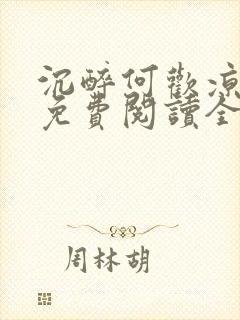 沉醉何歡涼
免費閱讀全
周林胡